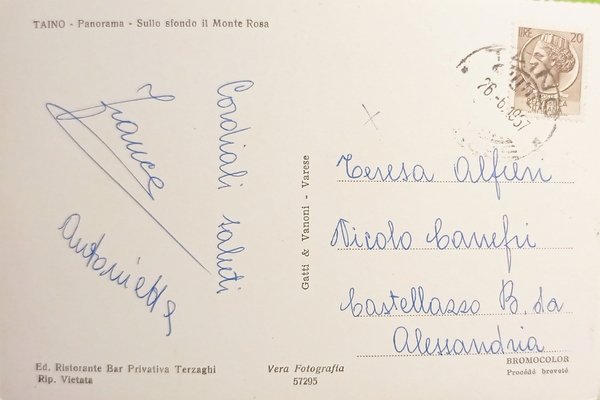 TAINO - Panorama - Sullo sfondo il Monte Rosa
LIRE 20
26-6.1967
Cordiali saluti
Franca
Antonietta
Gatti & Vanoni - Varese
Teresa Alfieri
Vicolo Canefri
Castellazzo B. da
Alessandria
Ed. Ristorante Bar Privativa Terzaghi
Rip. Vietata
Vera Fotografia
57295
BROMOCOLOR
Procédé breveté